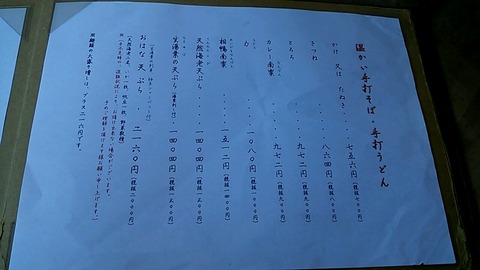 温かい手打そば・手打うどん
かけ 又は たぬき・・・・七五六円(税抜七〇〇円)
きつね・・・・八六四円(税抜八〇〇円)
とろろ・・・・九七二円(税抜九〇〇円)
カレー南蛮・・・・九七二円(税抜九〇〇円)
力・・・・一〇八〇円(税抜一〇〇〇円)
相鴨南蛮・・・・一五一二円(税抜一四〇〇円)
天然海老天ぷら・・・・一四〇四円(税抜一三〇〇円)
生湯葉の天ぷら・・・・一四〇四円(税抜一三〇〇円)
おはな 天ぷら・・二一六〇円(税抜二〇〇〇円)
※麺類の大盛り増しは、プラス二一六円です。